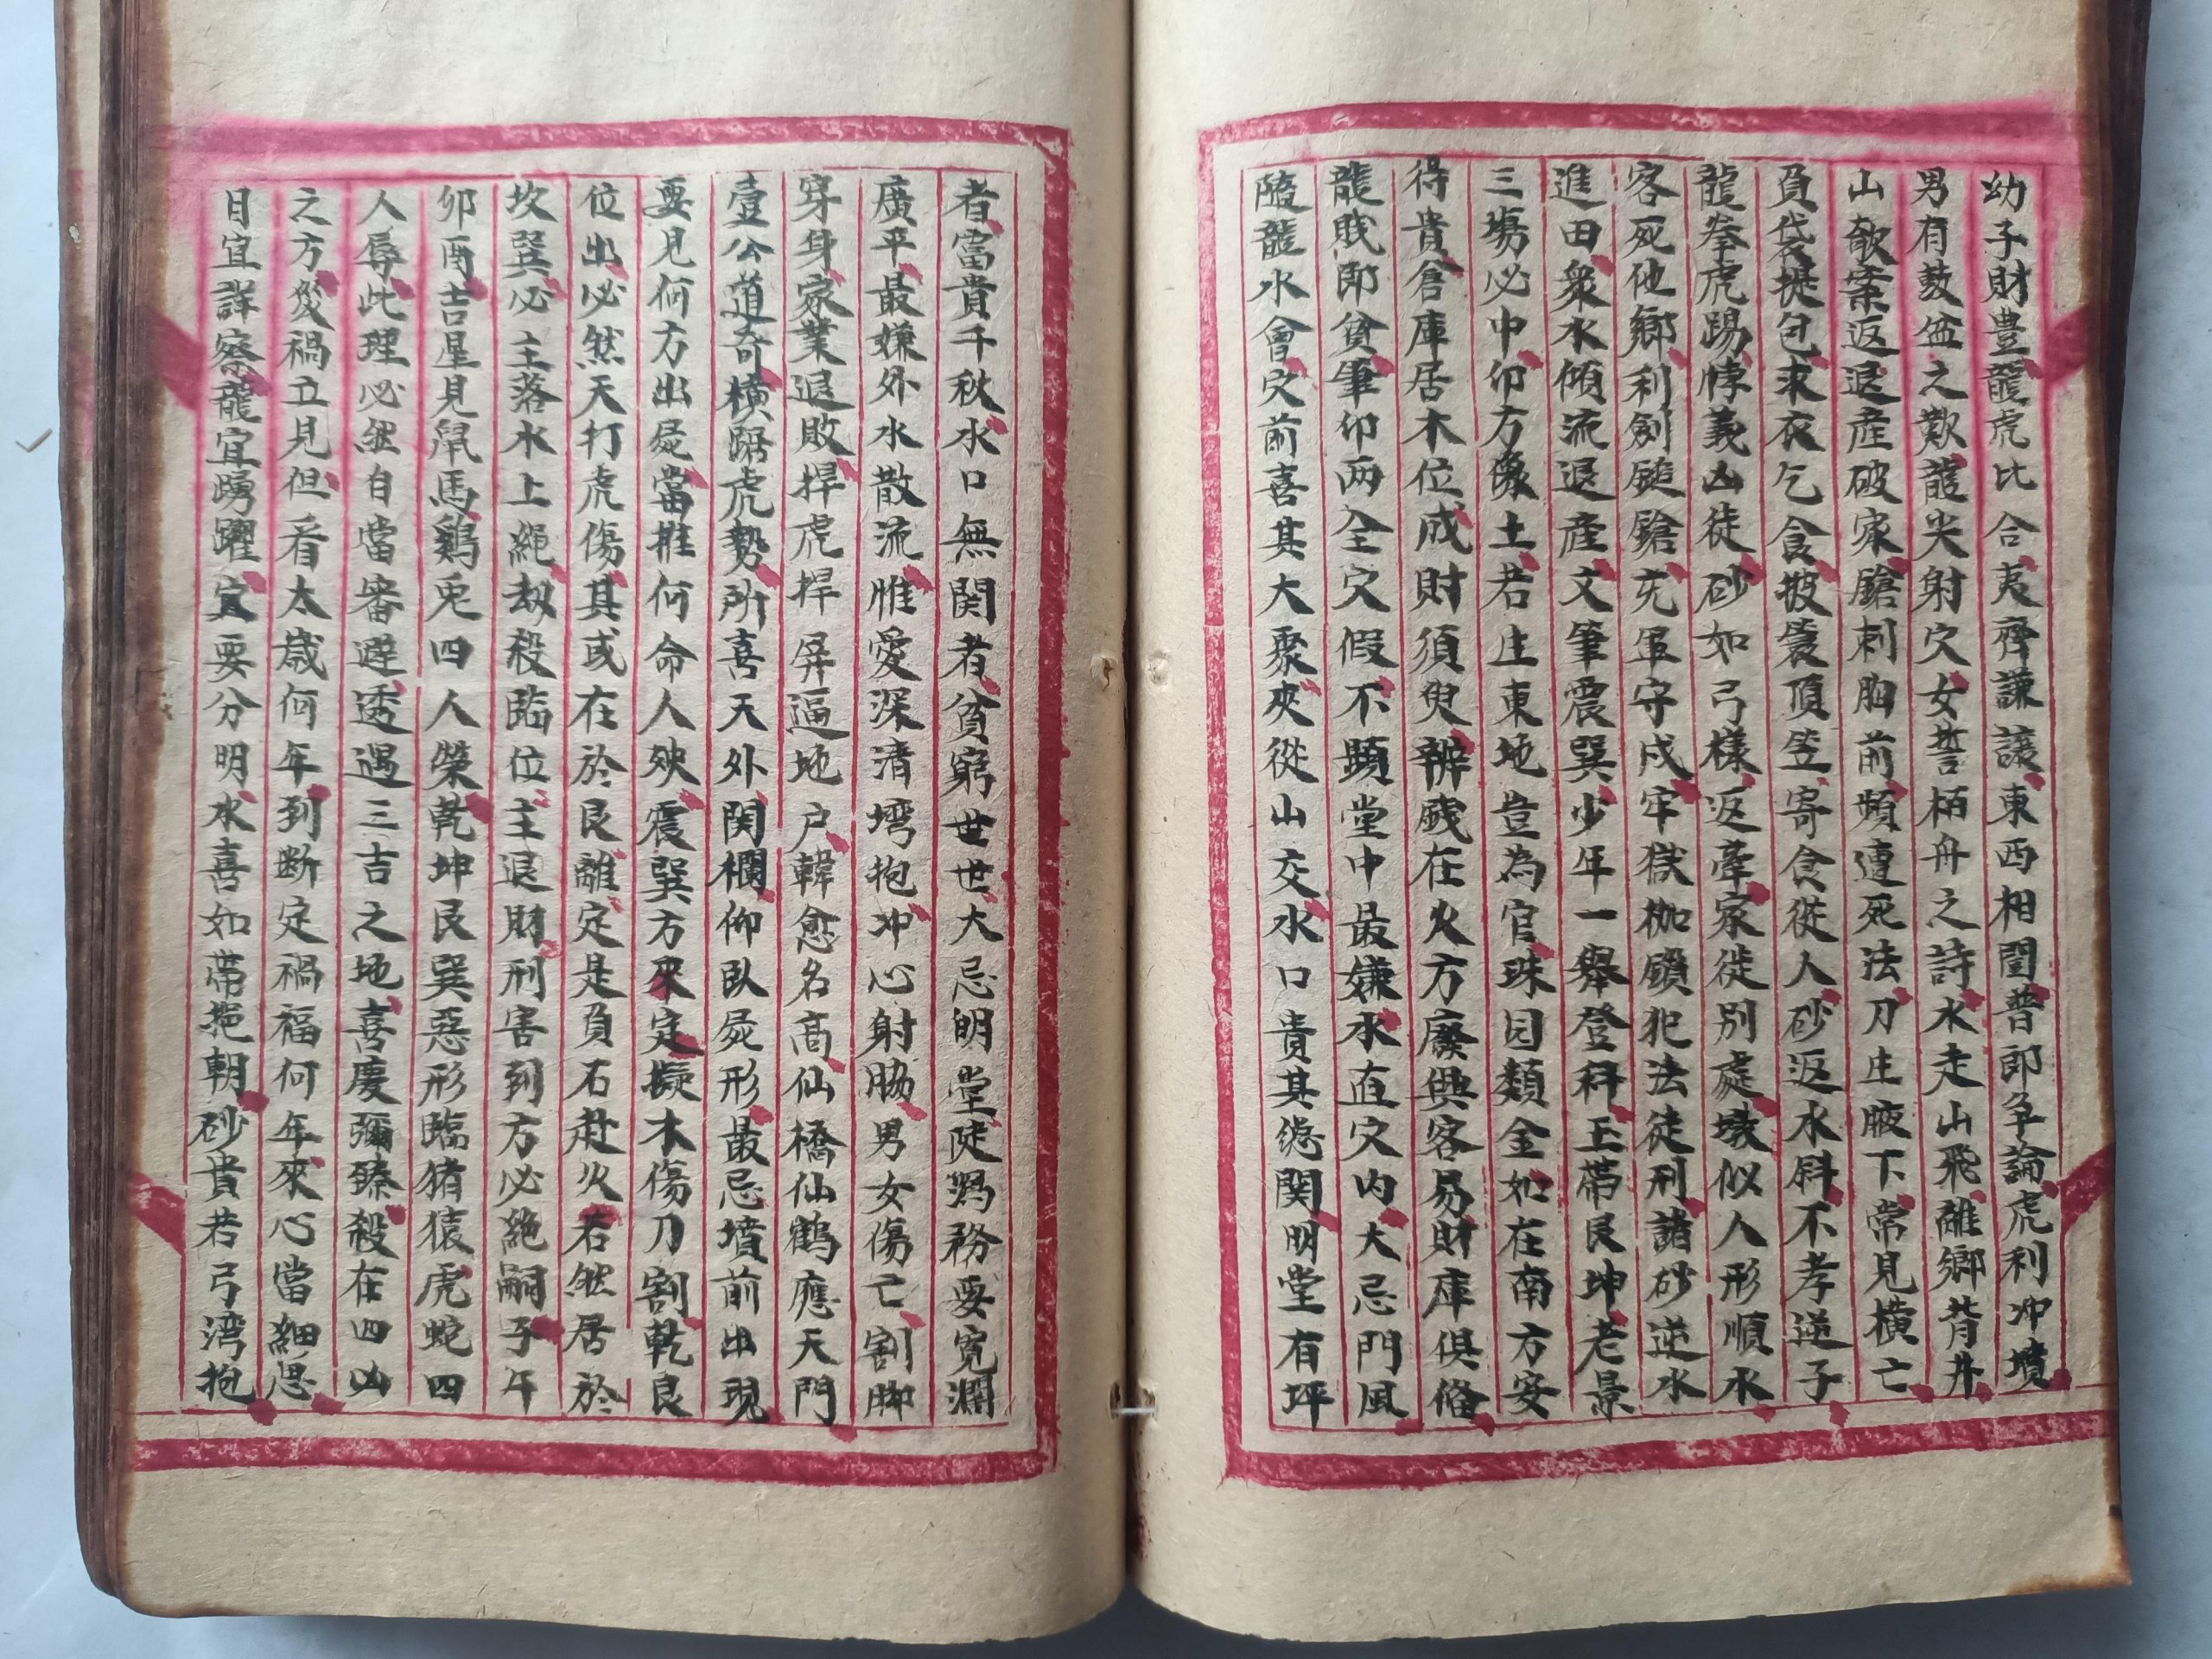 幼子財豊龍虎比合夷齊謙讓東西相閗普郎争論虎利冲墳
男有鼓盆之歎龍尖射穴女誓栢舟之詩水走山飛離鄉背井
山欹案返退産破家鎗刺胸前頻遭死法刀生腋下常見橫亡
負袋提包求衣乞食披簑頂笠寄食從人砂返水斜不孝逆子
龍拳虎踢悖義凶徒砂如弓樣返牽家徙別處墩似人形順水
客死他鄉利劍鎚鎗充軍守戍牢獄枷鎖犯法徒刑諸砂逆水
進田衆水傾流退産文筆震巽少年一舉登科玉帶艮坤老景
三塲必中卯方像土若生東地豈為官珠囙類金如在南方安
得貴倉庫居木位成財須臾辦錢在火方廢興客易財庫俱俗
龍賎即貧筆卯两全穴假不顕堂中最嫌水直穴内大忌門風
隨龍水會穴前喜其大聚夾從山交水口貴其總関明堂有坪
者富貴千秋水口無関者貧窮世世大忌明堂陡瀉務要寛濶
廣平最嫌外水散流惟愛深清塆抱冲心射脇男女傷亡割脚
穿身家業退敗捍虎捍屏逼地户韓愈名高仙橋仙鶴應天門
壹公道奇橫踞虎勢所喜天外関欄仰臥屍形最忌墳前出現
要見何方出屍當推何命人殃震巽方來定擬木傷刀割乾艮
位出必然天打虎傷其或在於艮離定是負石赴火若然居於
坎巽必主落水上繩刼殺臨位主退財刑害到方必絶嗣子午
卯酉吉星見鼠馬鷄兎四人榮乾坤艮巽惡形臨猪猿虎蛇四
人辱此理必然自當審避透遇三吉之地喜慶彌臻殺在四凶
之方災禍立見但看太歲何年到断定禍福何年來心當細思
目宜詳察龍宜踴躍宜要分明水喜如帶拖朝砂貴若弓湾抱